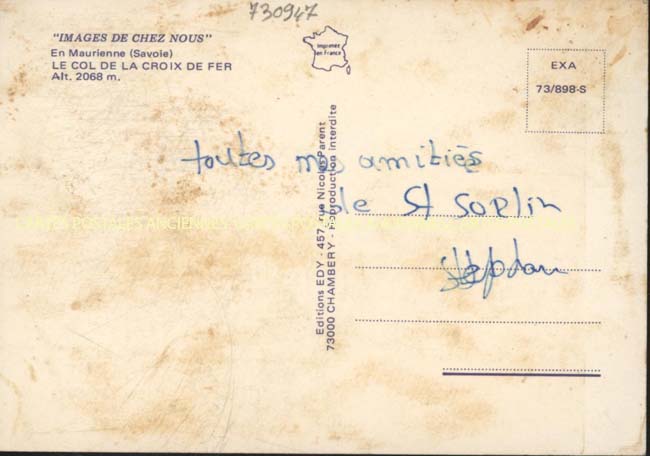 730947
"IMAGES DE CHEZ NOUS"
En Maurienne (Savoie)
LE COL DE LA CROIX DE FER
Alt. 2068 m.
Imprimée
en France
EXA
73/898-S
toutes mes amitiés
de St Sorlin
Stéphan
Editions EDY - 457, rue Nicolas Parent
73000 CHAMBERY - Reproduction interdite
CARTES POSTALES ANCIENNES